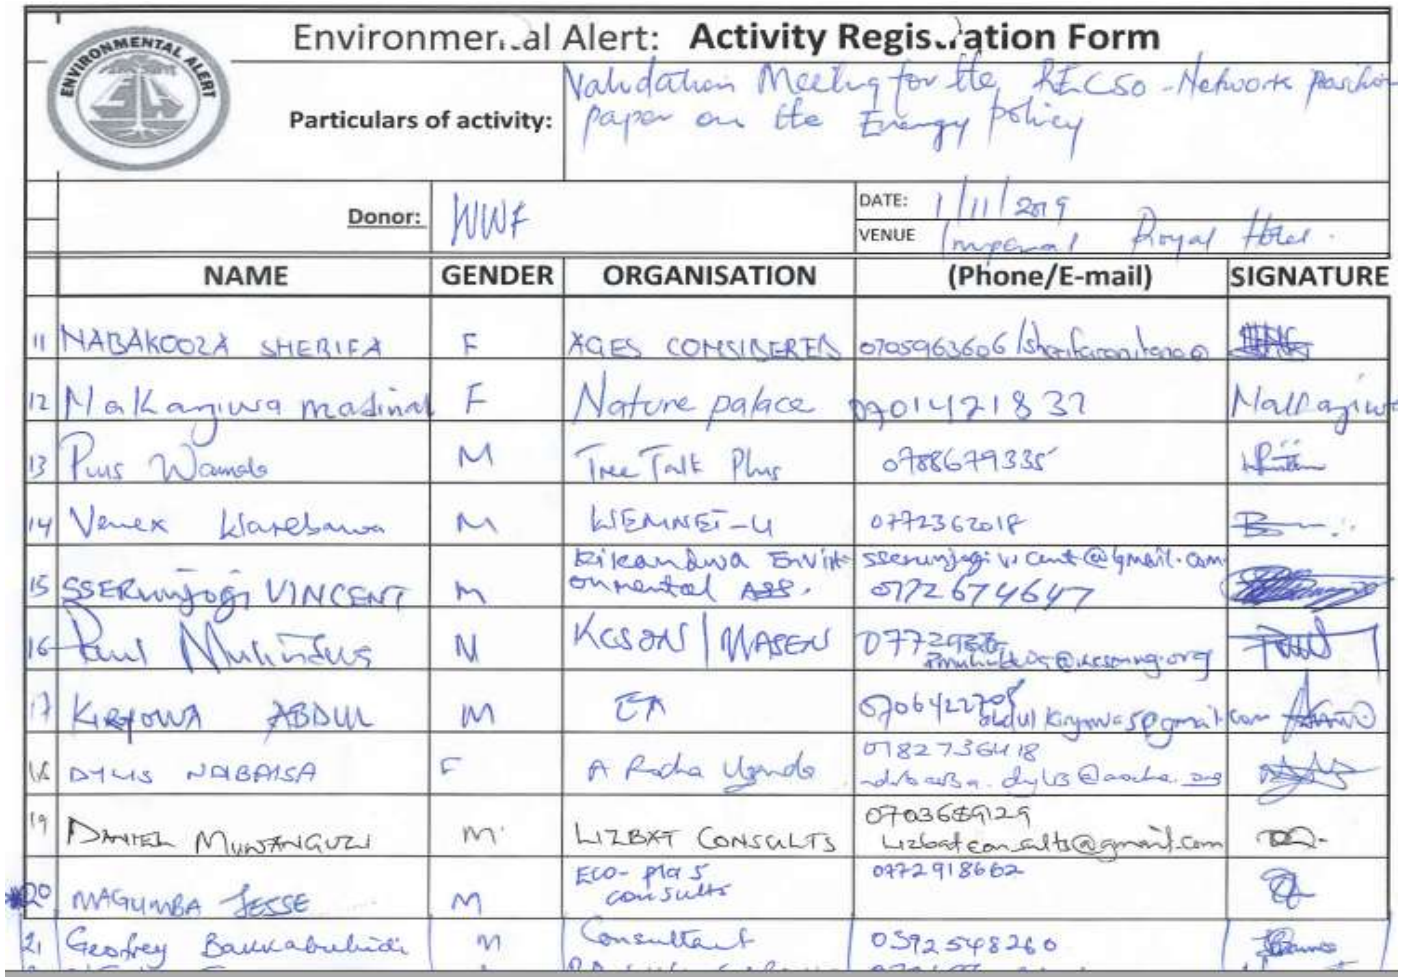 ENVIRONMENTAL ALERT
Environmental Alert: Activity Registration Form
Particulars of activity: Validation Meeting for the RECSO-Network position
paper on the Energy policy
Donor: WWF
DATE: 1/11/2019
VENUE Imperial Royal Hotel.
NAME GENDER ORGANISATION (Phone/E-mail) SIGNATURE
11 NABAKOOZA SHERIFA F AGES CONSIDERED 0705963606
12 Nakagiwa madinah F Nature palace 0701421832
13 Pius Wamala M Tree Talk Plus 0788679335
14 Venex M WEMNET-U 0772362018
15 SSERunjogi VINCENT M Kikandwa Envir-
onmental Ass. 0772674647
16 Paul Mulindwa M KCSON/MASEN
17 KIRYOWA ABDUL M EA 0706422705
18 DYLIS NABAISA F A Rocha Uganda 0782736418
19 DANIEL MUWANGUZI M LIZBAT CONSULTS
Lizbatconsults@gmail.com
20 MAGUMBA JESSE M ECO-plas
consults 0772918662
21 Geofrey M Consultant 0392548260